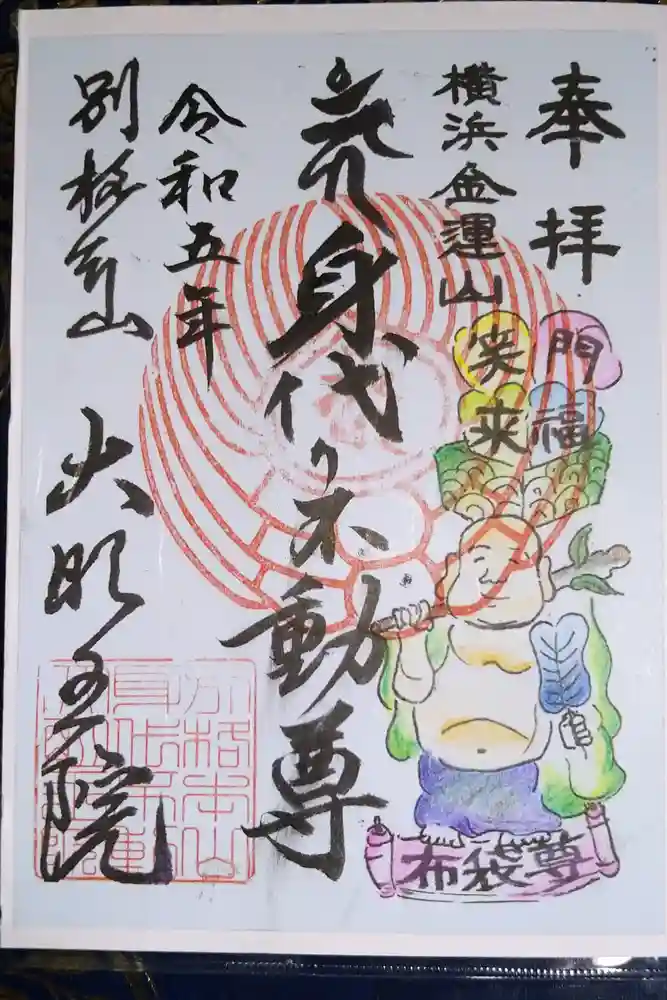 奉拝
横浜金運山
門福
笑来
布袋尊
身代り不動尊
令和五年
別格本山
大明王院